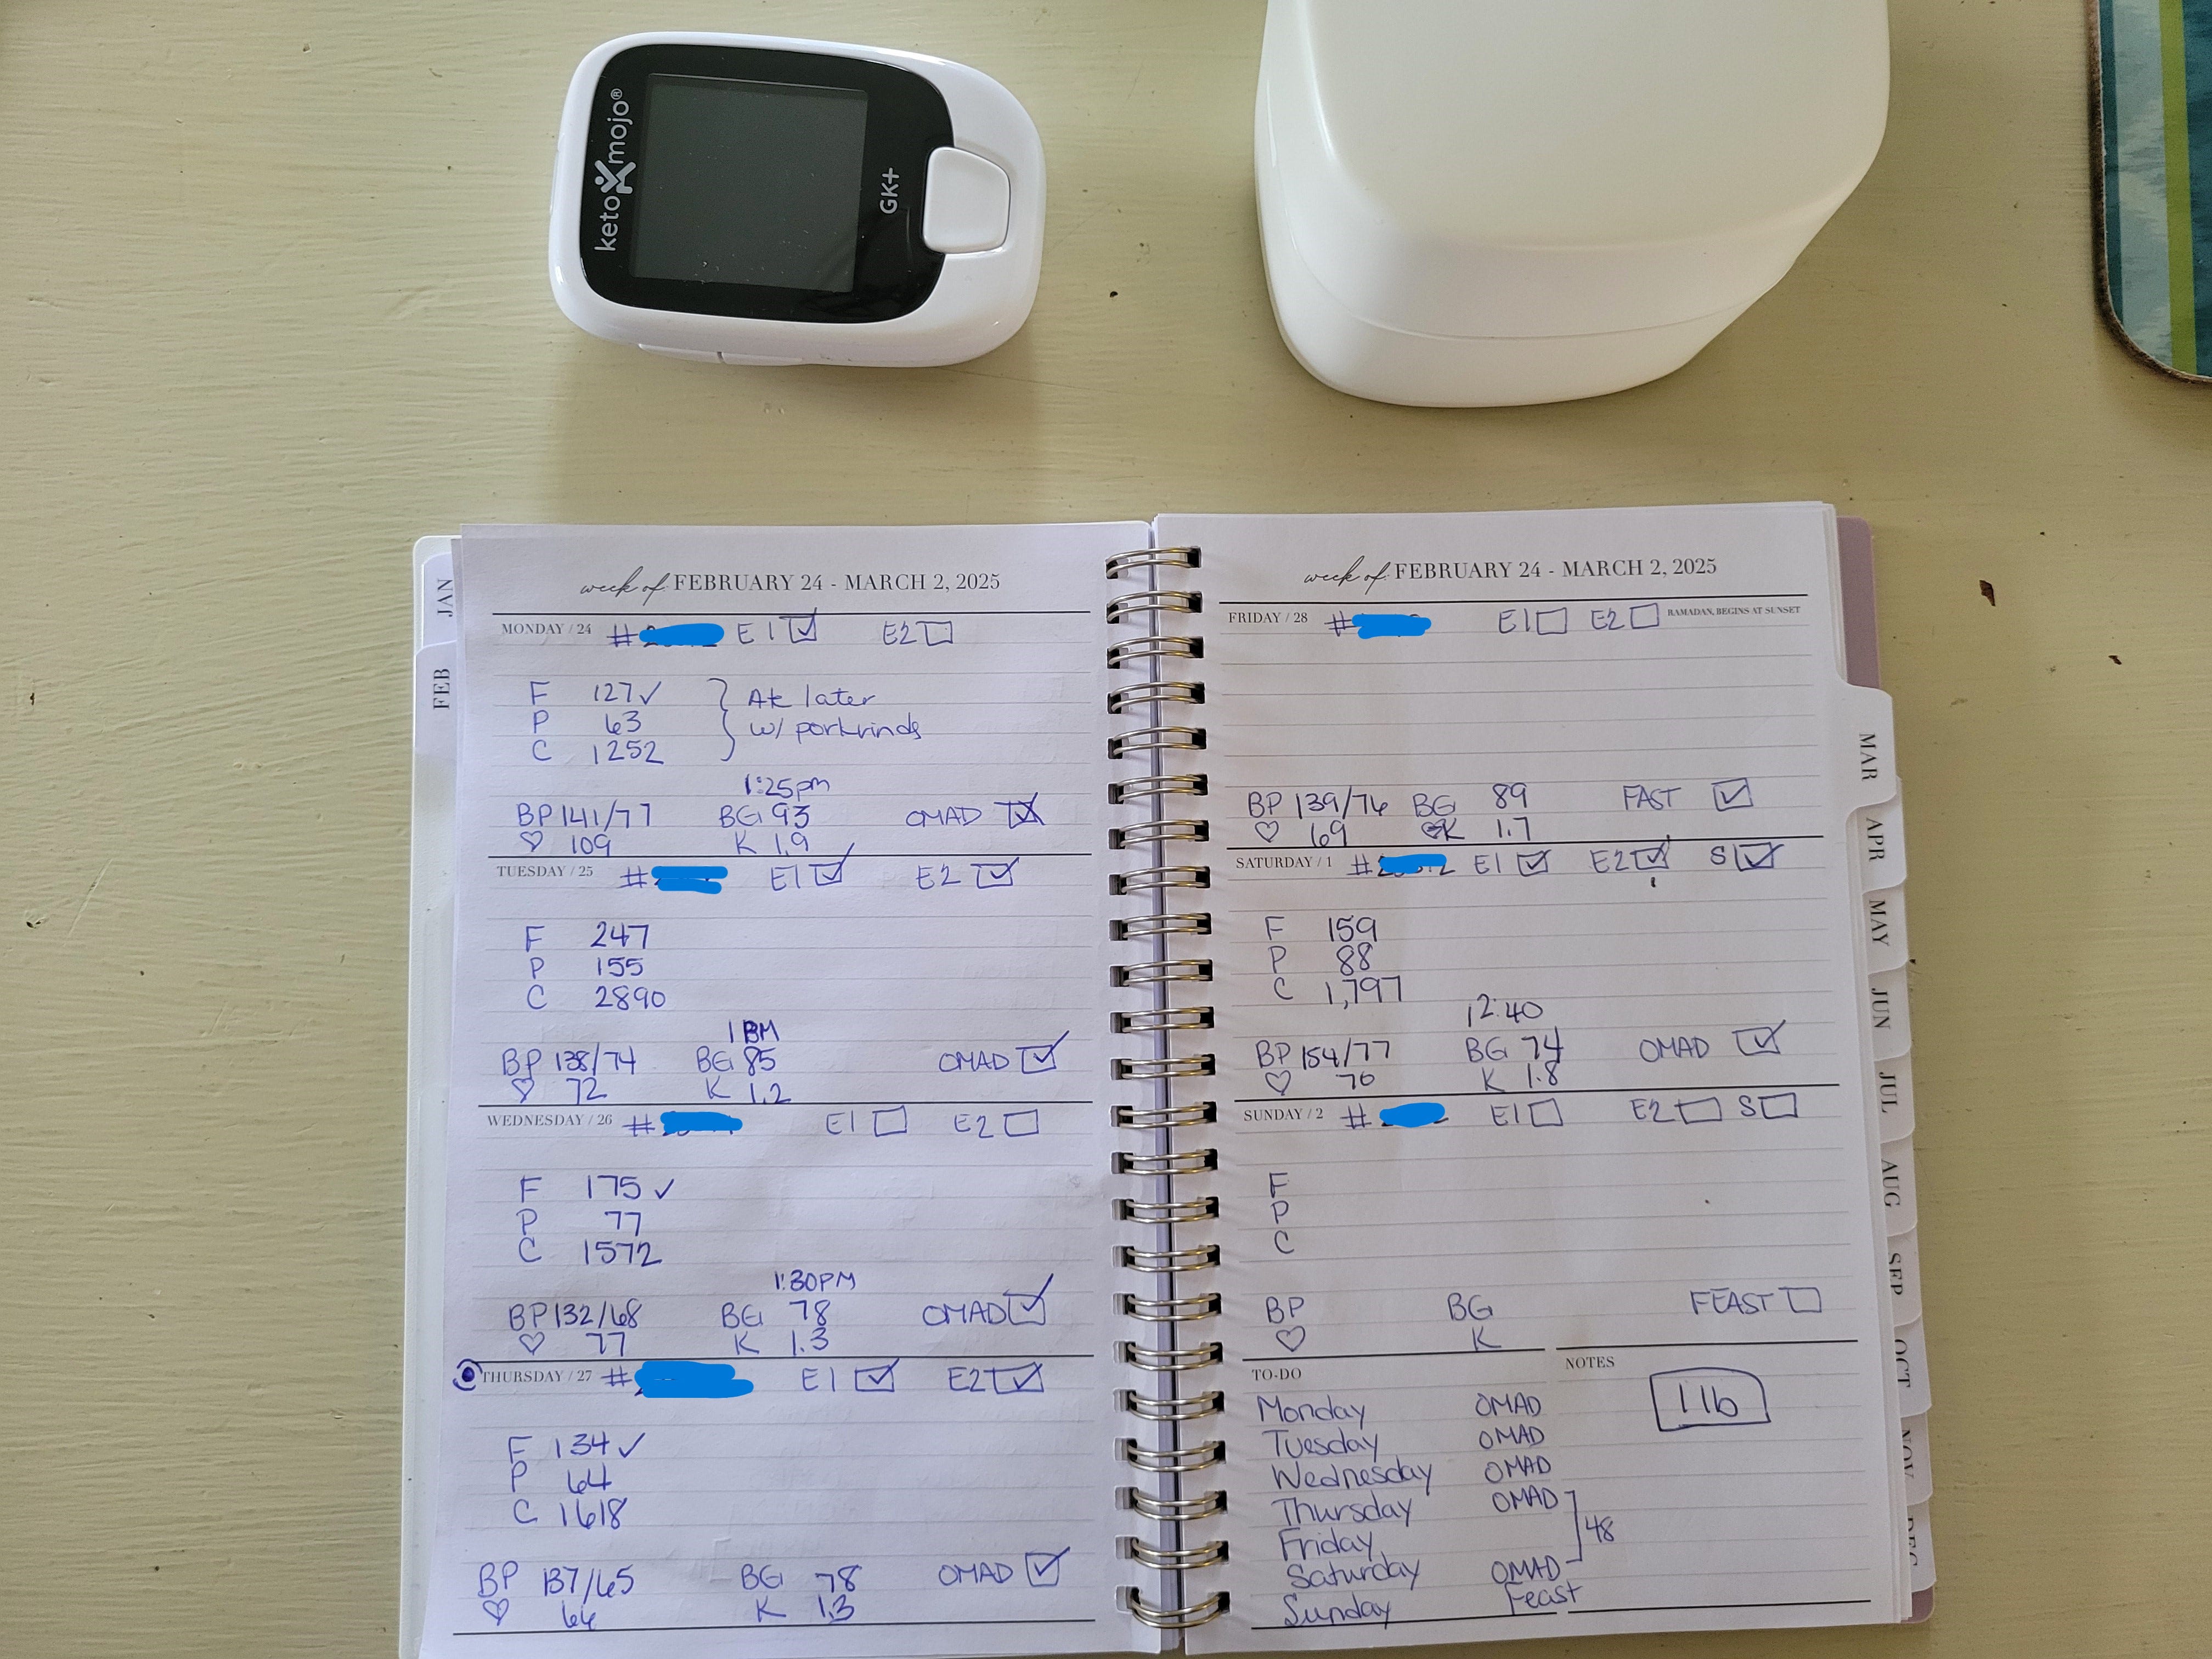 keto mojo®
GK+
JAN
FEB
week of FEBRUARY 24 - MARCH 2, 2025
MONDAY / 24 # E1 E2
F 127 ✓
P 63
C 1252
Ate later
w/ porkrinds
1:25pm
BP 141/77 BG 93 OMAD
♡ 109 K 1.9
TUESDAY / 25 # E1 E2
F 247
P 155
C 2890
1PM
BP 138/74 BG 85 OMAD
♡ 72 K 1.2
WEDNESDAY / 26 # E1 E2
F 175 ✓
P 77
C 1572
1:30PM
BP 132/68 BG 78 OMAD
♡ 77 K 1.3
THURSDAY / 27 # E1 E2
F 134 ✓
P 64
C 1618
BP 137/65 BG 78 OMAD
♡ 66 K 1.3
week of FEBRUARY 24 - MARCH 2, 2025
FRIDAY / 28 # E1 E2 RAMADAN, BEGINS AT SUNSET
BP 139/76 BG 89 FAST
♡ 69 K 1.7
SATURDAY / 1 # E1 E2 S
F 159
P 88
C 1,797
12:40
BP 154/77 BG 74 OMAD
♡ 70 K 1.8
SUNDAY / 2 # E1 E2 S
F
P
C
BP BG FEAST
♡ K
TO-DO
Monday OMAD
Tuesday OMAD
Wednesday OMAD
Thursday OMAD
Friday
48
Saturday OMAD
Sunday Feast
NOTES
1 lb
MAR
APR
MAY
JUN
JUL
AUG
SEP
OCT
NOV
DEC